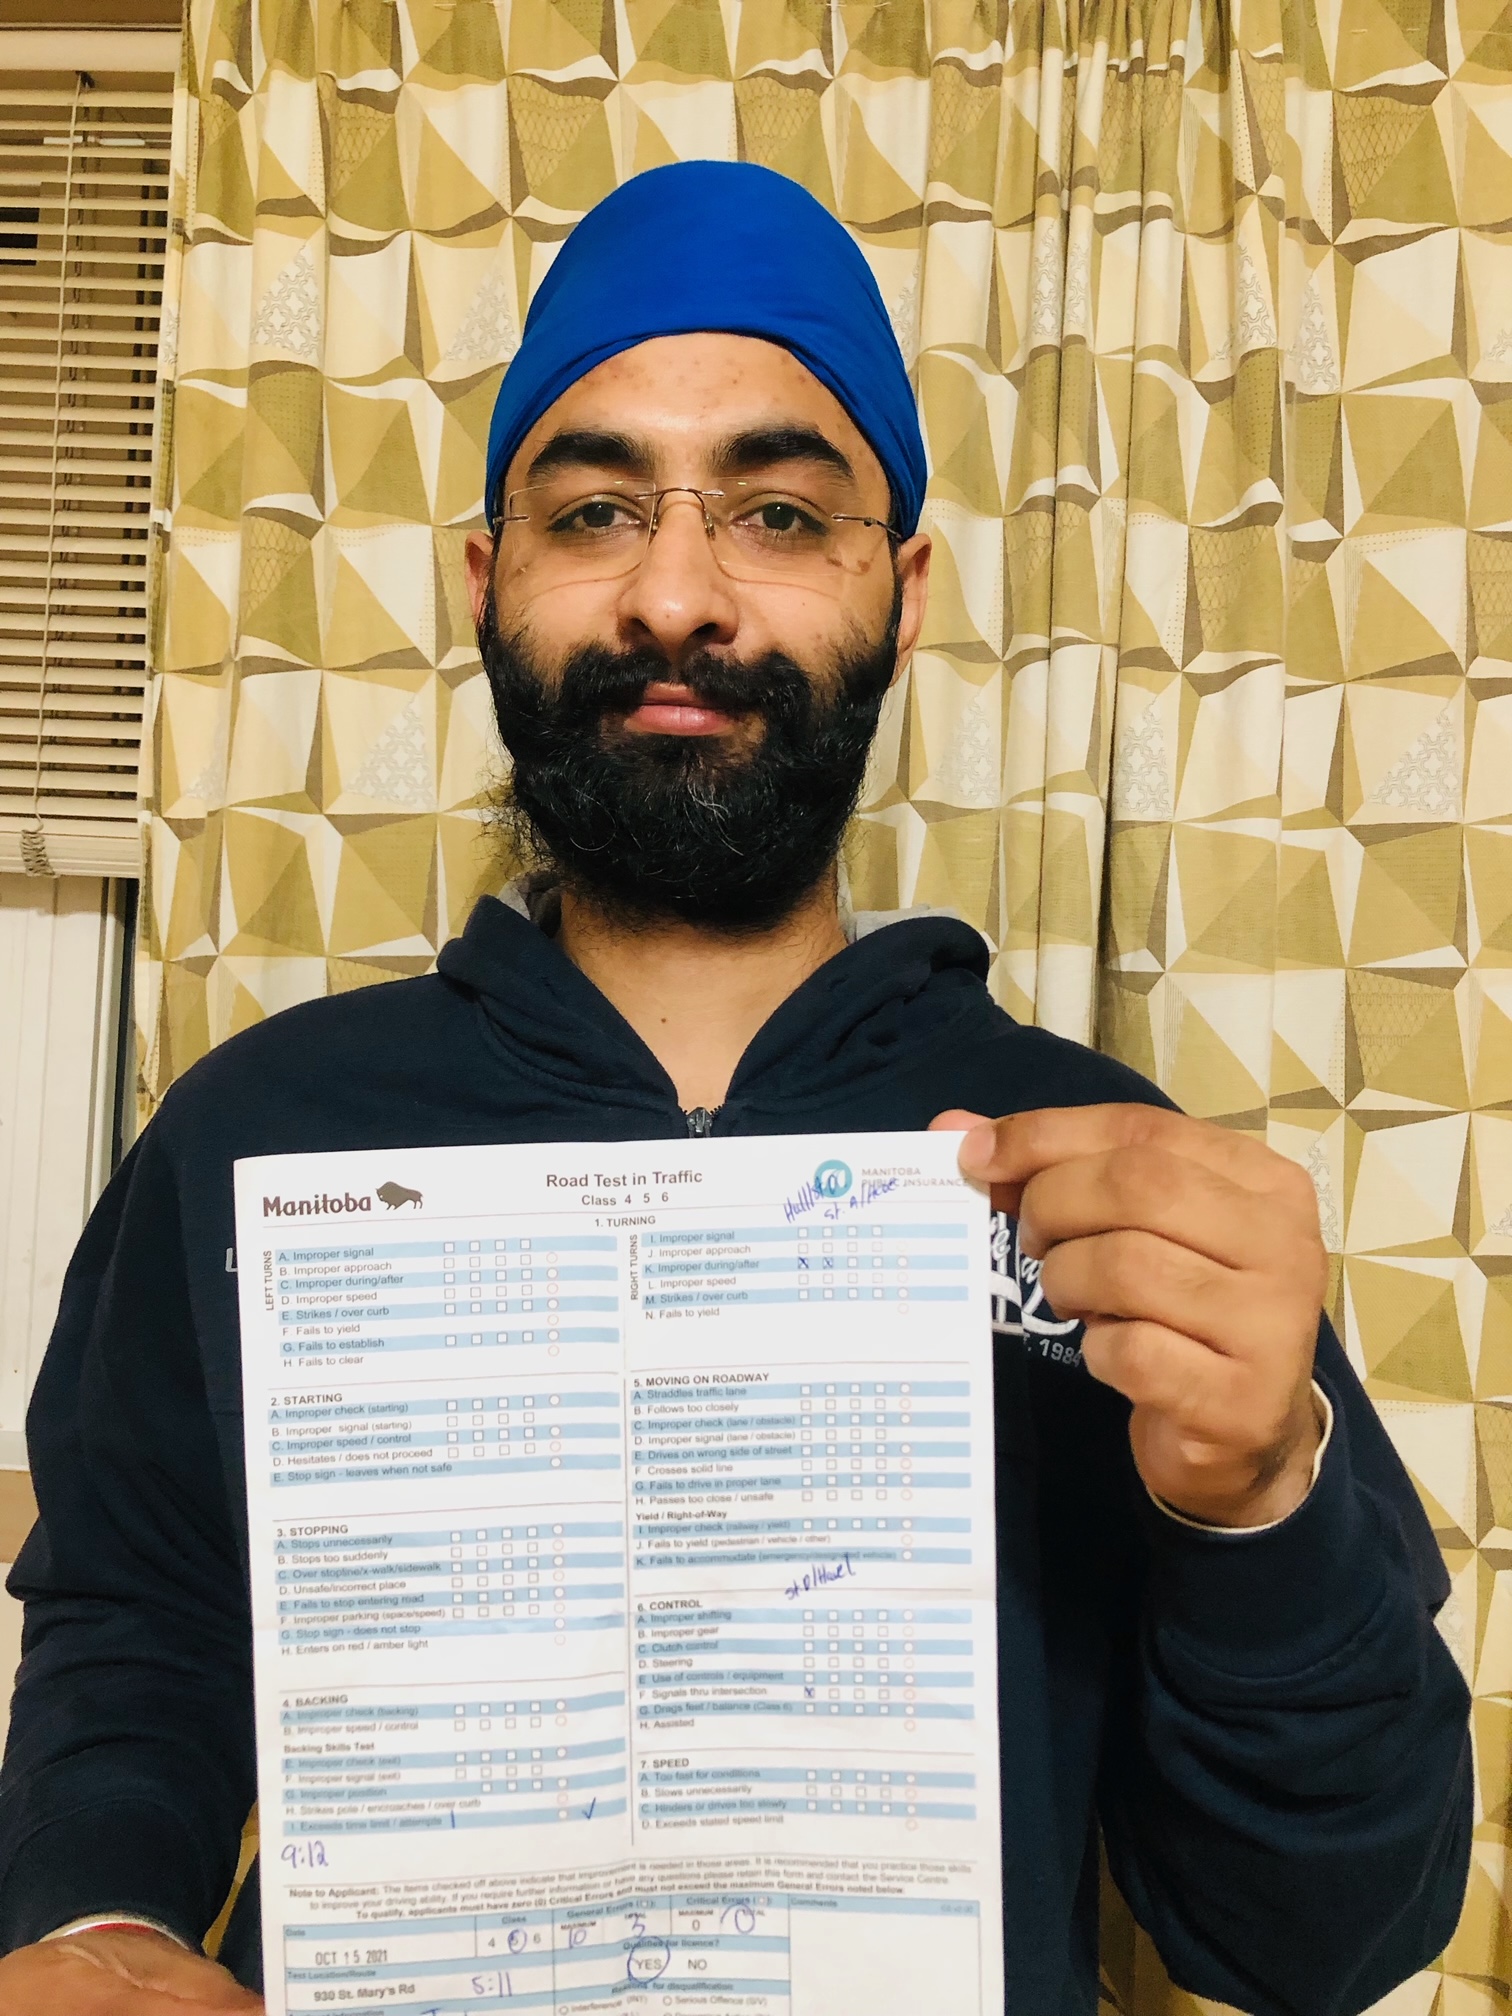 Manitoba
Road Test in Traffic
Class 4 5 6
MANITOBA
PUBLIC INSURANCE
1. TURNING
LEFT TURNS
A. Improper signal
B. Improper approach
C. Improper during/after
D. Improper speed
E. Strikes / over curb
F. Fails to yield
G. Fails to establish
H. Fails to clear
RIGHT TURNS
I. Improper signal
J. Improper approach
K. Improper during/after
L. Improper speed
M. Strikes / over curb
N. Fails to yield
2. STARTING
A. Improper check (starting)
B. Improper signal (starting)
C. Improper speed / control
D. Hesitates / does not proceed
E. Stop sign - leaves when not safe
3. STOPPING
A. Stops unnecessarily
B. Stops too suddenly
C. Over stopline/x-walk/sidewalk
D. Unsafe/incorrect place
E. Fails to stop entering road
F. Improper parking (space/speed)
G. Stop sign - does not stop
H. Enters on red / amber light
4. BACKING
A. Improper check (backing)
B. Improper speed / control
Backing Skills Test
E. Improper check (exit)
F. Improper signal (exit)
G. Improper position
H. Strikes pole / encroaches / over curb
I. Exceeds time limit / attempts
9:12
5. MOVING ON ROADWAY
A. Straddles traffic lane
B. Follows too closely
C. Improper check (lane / obstacle)
D. Improper signal (lane / obstacle)
E. Drives on wrong side of street
F. Crosses solid line
G. Fails to drive in proper lane
H. Passes too close / unsafe
Yield / Right-of-Way
I. Improper check (railway / yield)
J. Fails to yield (pedestrian / vehicle / other)
K. Fails to accommodate (emergency/designated vehicle)
6. CONTROL
A. Improper shifting
B. Improper gear
C. Clutch control
D. Steering
E. Use of controls / equipment
F. Signals thru intersection
G. Drags feet / balance (Class 6)
H. Assisted
7. SPEED
A. Too fast for conditions
B. Slows unnecessarily
C. Hinders or drives too slowly
D. Exceeds stated speed limit
Note to Applicant: The items checked off above indicate that improvement is needed in those areas. It is recommended that you practice those skills
to improve your driving ability. If you require further information or have any questions please retain this form and contact the Service Centre
To qualify, applicants must have zero (0) Critical Errors and must not exceed the maximum General Errors noted below.
Date
OCT 15 2021
Class
4 5 6
General Errors
MAXIMUM
10
3
Critical Errors
MAXIMUM
0
TOTAL
0
Comments
Qualifies for licence?
YES NO
Test Location/Route
930 St. Mary's Rd 5:11
Reasons for disqualification
Interference (INT) Serious Offence (S/V)
1984